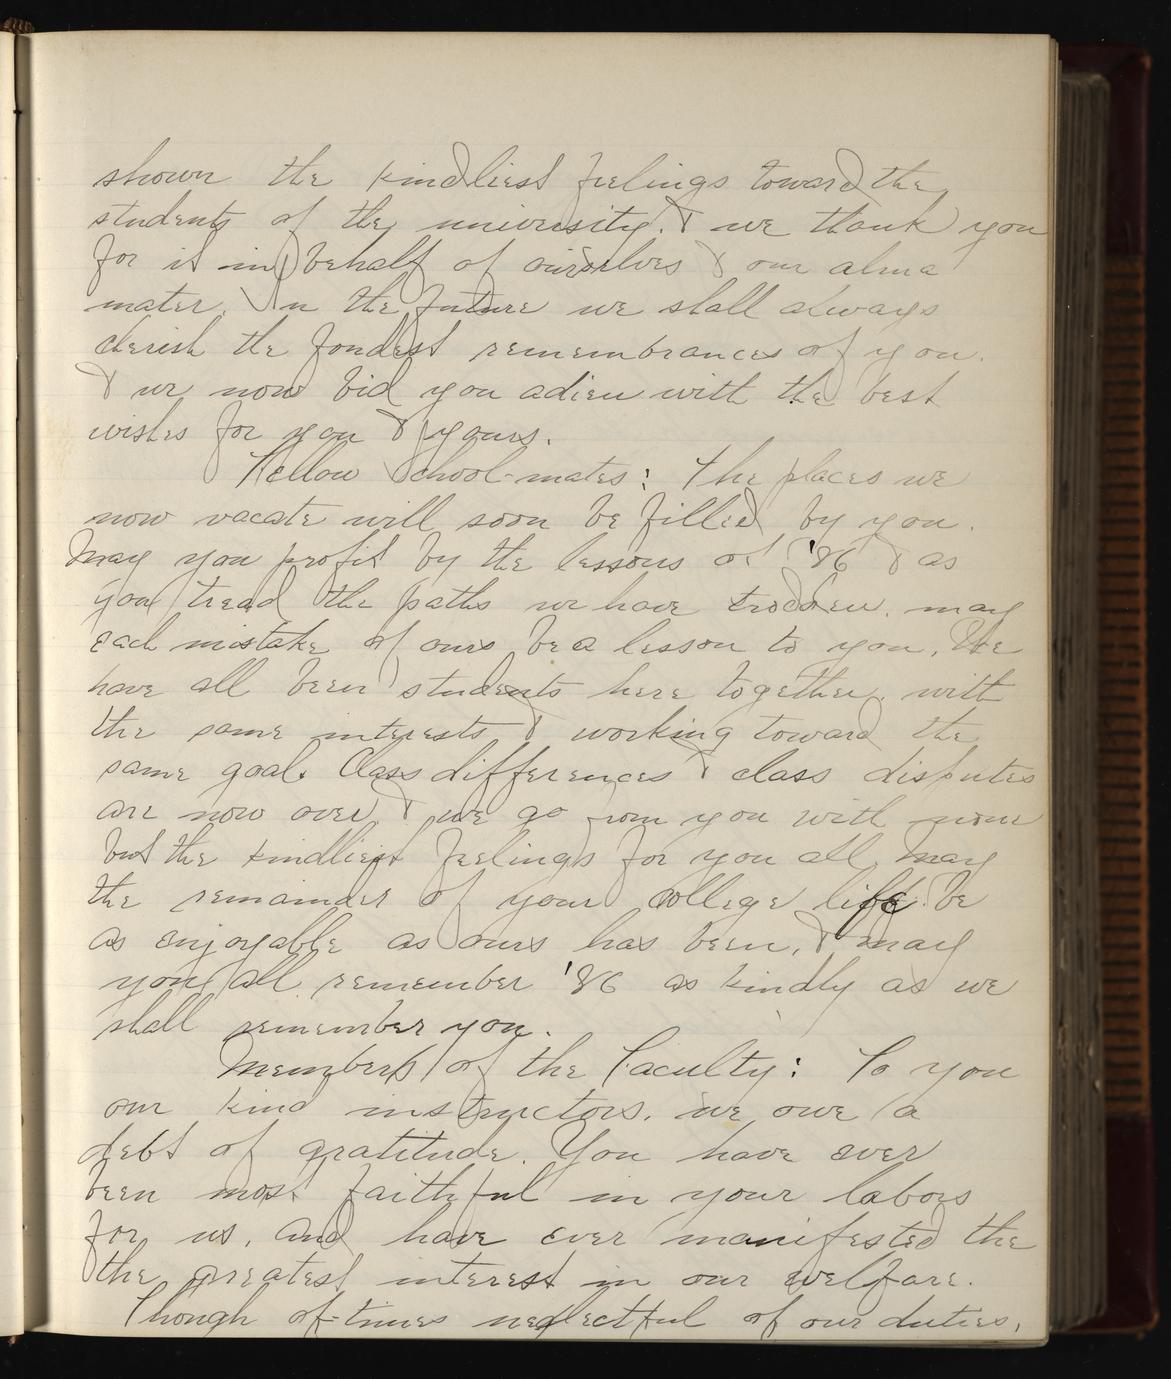 shown the kindliest feelings toward the
students of the university. & we thank you
for it in behalf of ourselves & our alma
mater. In the future we shall always
cherish the fondest remembrances of you.
& we now bid you adieu with the best
wishes for you & yours.
Fellow School-mates: The places we
now vacate will soon be filled by you.
May you profit by the lessons of '86 & as
you tread the paths we have trodden. may
each mistake of ours be a lesson to you. We
have all been students here together. with
the same interests & working toward the
same goal. Class differences & class disputes
are now over & we go from you with none
but the kindliest feelings for you all. May
the remainder of your college life be
as enjoyable as ours has been, & may
you all remember '86 as kindly as we
shall remember you.
Members of the Faculty: To you
our kind instructors. we owe a
debt of gratitude. You have ever
been most faithful in your labors
for us, and have ever manifested the
the greatest interest in our welfare.
Though of-times neglectful of our duties,